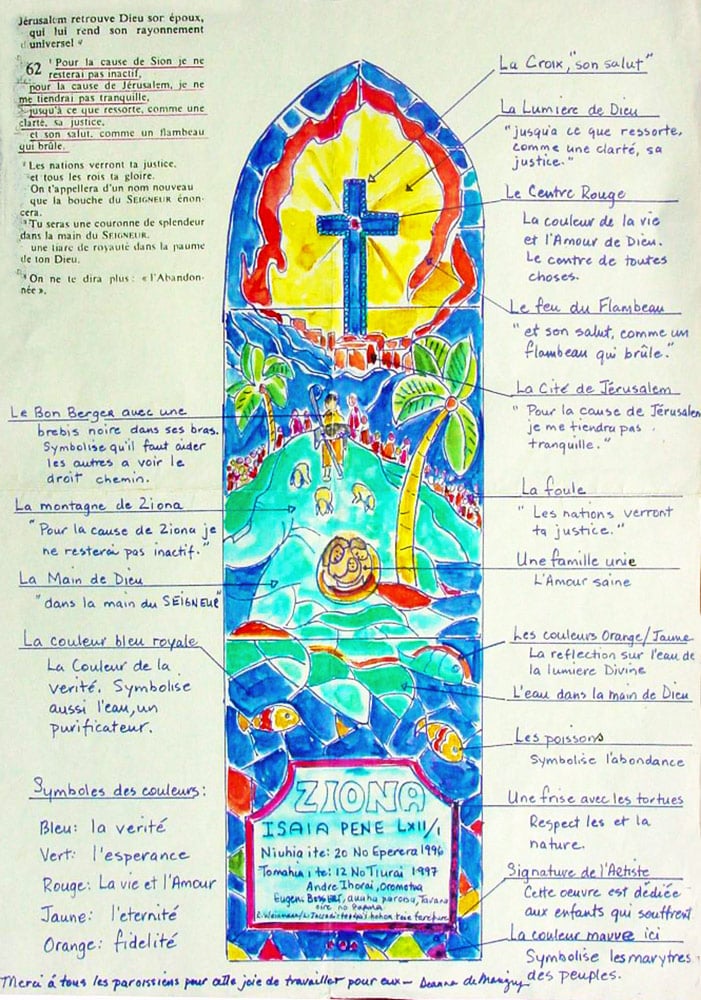 Jérusalem retrouve Dieu sor époux,
qui lui rend son rayonnement
universel
62 ¹ Pour la cause de Sion je ne
resterai pas inactif,
pour la cause de Jérusalem, je ne
me tiendrai pas tranquille,
jusqu'à ce que ressorte, comme une
clarté, sa justice,
et son salut, comme un flambeau
qui brûle.
² Les nations verront ta justice,
et tous les rois ta gloire.
On t'appellera d'un nom nouveau
que la bouche du SEIGNEUR énon-
cera.
³ Tu seras une couronne de splendeur
dans la main du SEIGNEUR,
une tiare de royauté dans la paume
de ton Dieu.
⁴ On ne te dira plus : « l'Abandon-
née »,
La Croix, "son salut"
La Lumiere de Dieu
"jusqu'a ce que ressorte,
comme une clarté, sa
justice."
Le Centre Rouge
La couleur de la vie
et l'Amour de Dieu.
Le centre de toutes
choses.
Le feu du Flambeau
"et son salut, comme un
flambeau qui brûle."
La Cité de Jérusalem
"Pour la cause de Jérusalem
je me tiendra pas
tranquille."
La foule
"Les nations verront
ta justice."
Une famille unie
L'Amour saine
Les couleurs Orange/Jaune
La reflection sur l'eau de
la lumiere Divine
L'eau dans la main de Dieu
Les poissons
Symbolise l'abondance
Une frise avec les tortues
Respect les et la
nature.
Signature de l'Artiste
Cette oeuvre est dédiée
aux enfants qui souffrent
La couleur mauve ici
Symbolise les marytres
des peuples.
Le Bon Berger avec une
brebis noire dans ses bras.
Symbolise qu'il faut aider
les autres a voir le
droit chemin.
La montagne de Ziona
"Pour la cause de Ziona je
ne resterai pas inactif."
La Main de Dieu
"dans la main du SEIGNEUR"
La couleur bleu royale
La Couleur de la
verité. Symbolise
aussi l'eau, un
purificateur.
Symboles des couleurs:
Bleu: la verité
Vert: l'esperance
Rouge: La vie et l'Amour
Jaune: l'eternité
Orange: fidelité
ZIONA
ISAIA PENE LXII/1
Niuhia ite: 20 No Eperera 1996
Tomahia ite: 12 No Tiurai 1997
Andre Ihorai, Orometua
Eugene auuhu paroisa, Tavana
oire no
Merci á tous les paroissiens pour cette joie de travailler pour eux — Deanna de Marigny